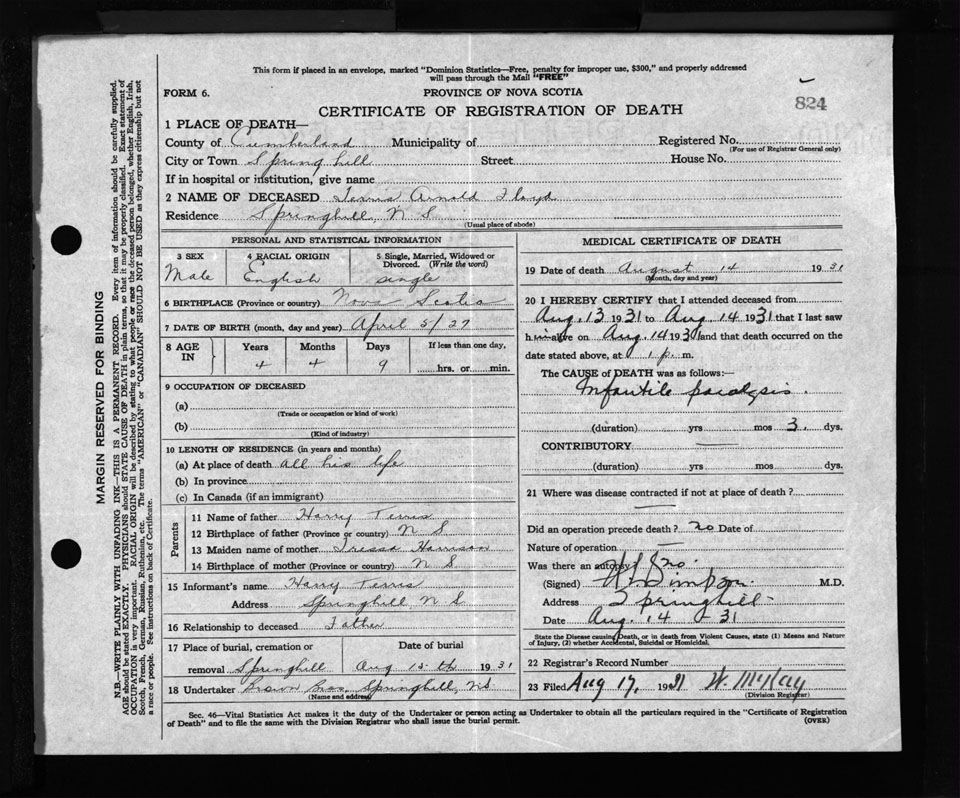 This form if placed in an envelope, marked "Dominion Statistics—Free, penalty for improper use, $300," and properly addressed
will pass through the Mail "FREE"
FORM 6.
PROVINCE OF NOVA SCOTIA
824
CERTIFICATE OF REGISTRATION OF DEATH
1 PLACE OF DEATH—
County of Cumberland Municipality of Registered No.
(For use of Registrar General only)
City or Town Springhill Street House No.
If in hospital or institution, give name
2 NAME OF DECEASED Terris Arnold Floyd
Residence Springhill, N S
(Usual place of abode)
PERSONAL AND STATISTICAL INFORMATION
3 SEX 4 RACIAL ORIGIN 5 Single, Married, Widowed or
Divorced. (Write the word)
Male English single
6 BIRTHPLACE (Province or country) Nova Scotia
7 DATE OF BIRTH (month, day and year) April 5/27
8 AGE IN Years Months Days If less than one day,
4 4 9 hrs. or min.
9 OCCUPATION OF DECEASED
(a)
(Trade or occupation or kind of work)
(b)
(Kind of industry)
10 LENGTH OF RESIDENCE (in years and months)
(a) At place of death all his life
(b) In province
(c) In Canada (if an immigrant)
Parents
11 Name of father Harry Terris
12 Birthplace of father (Province or country) N S
13 Maiden name of mother Tressa Harrison
14 Birthplace of mother (Province or country) N S
15 Informant's name Harry Terris
Address Springhill, N S
16 Relationship to deceased Father
17 Place of burial, cremation or Date of burial
removal Springhill Aug 15th 1931
18 Undertaker Brown Bros, Springhill, NS
(Name and address)
MEDICAL CERTIFICATE OF DEATH
19 Date of death August 14 1931
(Month, day and year)
20 I HEREBY CERTIFY that I attended deceased from
Aug. 13 1931 to Aug. 14 1931 that I last saw
him alive on Aug 14 1931 and that death occurred on the
date stated above, at 1 p. m.
The CAUSE of DEATH was as follows:—
Infantile paralysis.
(duration) yrs mos 3. dys.
CONTRIBUTORY
(duration) yrs mos dys.
21 Where was disease contracted if not at place of death?
Did an operation precede death? no Date of
Nature of operation
Was there an autopsy? no.
(Signed) Simpson. M.D.
Address Springhill
Date Aug. 14 - 31
State the Disease causing Death, or in death from Violent Causes, state (1) Means and Nature
of Injury, (2) whether Accidental, Suicidal or Homicidal.
22 Registrar's Record Number
23 Filed Aug 17, 1931 W. McKay
(Division Registrar)
Sec. 46—Vital Statistics Act makes it the duty of the Undertaker or person acting as Undertaker to obtain all the particulars required in the "Certificate of Registration
of Death" and to file the same with the Division Registrar who shall issue the burial permit.
(OVER)
MARGIN RESERVED FOR BINDING
N.B.—WRITE PLAINLY WITH UNFADING INK—THIS IS A PERMANENT RECORD. Every item of information should be carefully supplied.
AGE should be stated EXACTLY. PHYSICIANS should STATE CAUSE OF DEATH in plain terms, so that it may be properly classified. Exact statement of
OCCUPATION is very important. RACIAL ORIGIN will be described by stating to what people or race the deceased person belonged, whether English, Irish,
Scotch, French, German, Russian, Ruthenian, etc. The terms "AMERICAN" or "CANADIAN" SHOULD NOT BE USED as they express citizenship but not
a race or people. See instructions on back of Certificate.